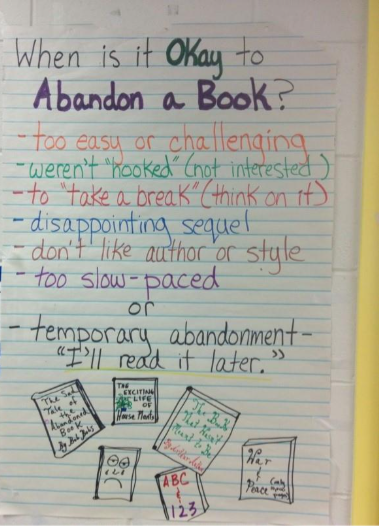 When is it Okay to
Abandon a Book?
- too easy or challenging
- weren't "hooked" (not interested)
- to "take a break" (think on it)
- disappointing sequel
- don't like author or style
- too slow-paced
or
- temporary abandonment -
"I'll read it later."
The Sad
Tale of
the
Abandoned
Book
By Bob
THE
EXCITING
LIFE
OF
House Plants
The Book
That Wasn't
Meant to Be
ABC
&
123
War
&
Peace